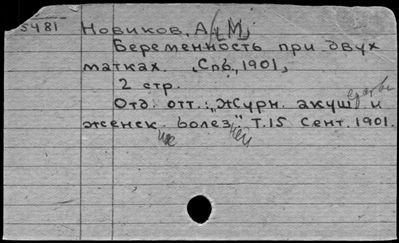 5481 Новиков, А. (М)
Беременность при двух
матках. Спб, 1901,
2 стр.
Отд. отт.: "Журн. акуш и
женск. болез." Т. 15 Сент. 1901.